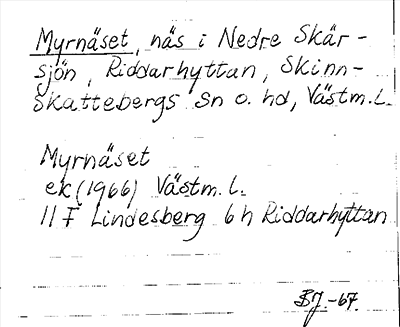 Myrnäset, näs i Nedre Skär-
sjön, Riddarhyttan, Skinn-
skattebergs sn o. hd, Västm.l.
Myrnäset
ek (1966) Västm. l.
11 F Lindesberg 6 h Riddarhyttan
BJ.-67.